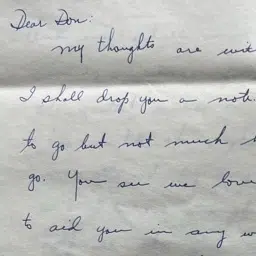 Dear Don:
my thoughts are wit
I shall drop you a note
to go but not much
go. You see we love
to aid you in any w